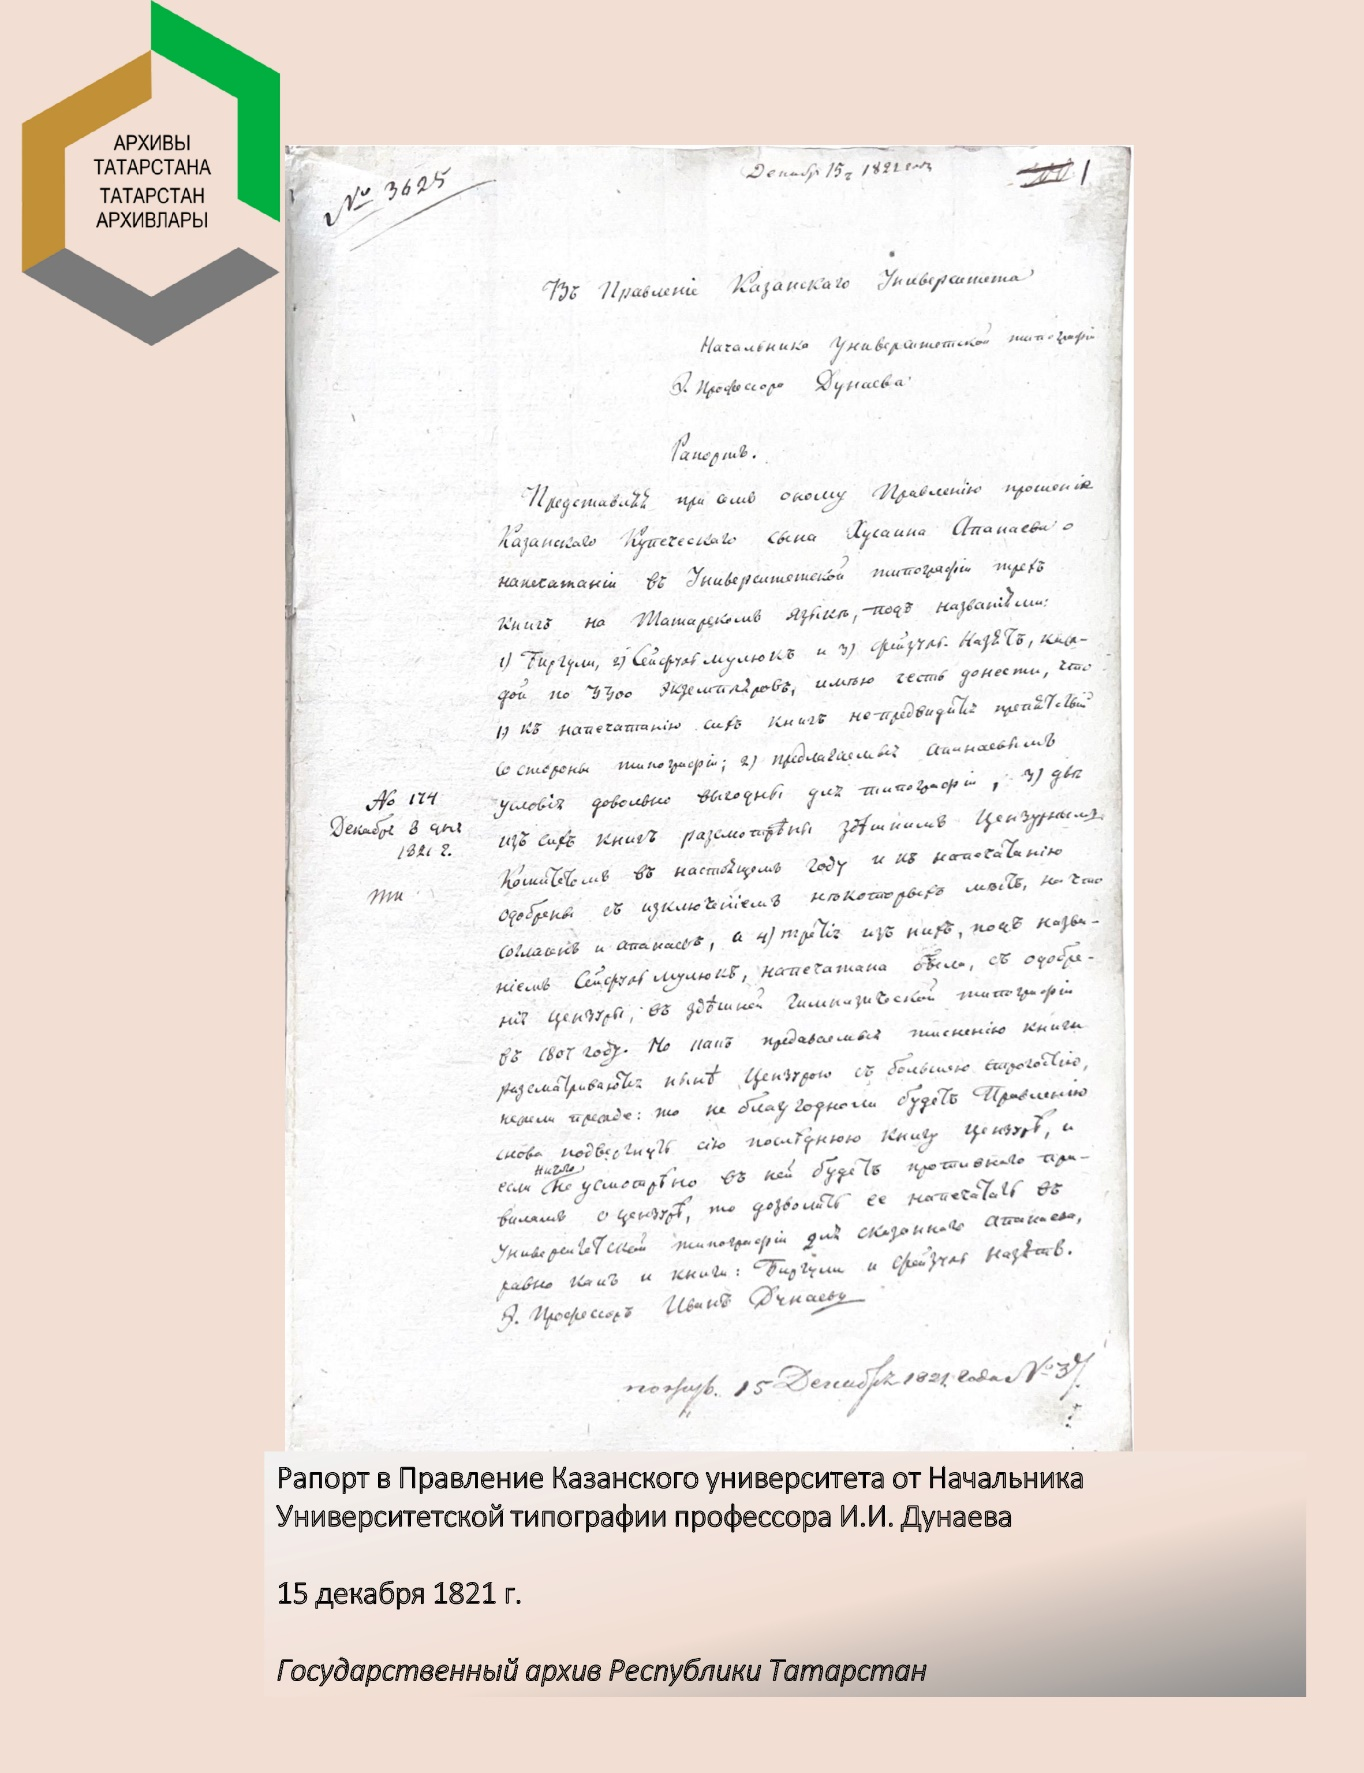 АРХИВЫ
ТАТАРСТАНА
ТАТАРСТАН
АРХИВЛАРЫ
№ 3625
Декабр 15 1821 года
1
Въ Правленіе Казанскаго Университета
Начальника Университетской типографіи
Э. Профессора Дунаева
Рапортъ.
Представляя при семъ оному Правленію прошеніе
Казанскаго Купеческаго сына Хусаина Апанаева о
напечатаніи въ Университетской типографіи трехъ
книгъ на Татарскомъ языкѣ, подъ названіями:
1) Биргули, 2) Сейфуль мулюкъ и 3) Фейзуль Назятъ, каж-
дой по 3300 экземпляровъ, имѣю честь донести, что
1) къ напечатанію сихъ книгъ не предвидится препятствій
со стороны типографіи; 2) предлагаемыя Апанаевымъ
условія довольно выгодны для типографіи, 3) двѣ
изъ сихъ книгъ разсмотрѣны здѣшнимъ Цензурнымъ
Комитетомъ въ настоящемъ году и къ напечатанію
одобрены съ изключеніемъ нѣкоторыхъ мѣстъ, на что
согласенъ и Апанаевъ, а 4) третія изъ нихъ, подъ назва-
ніемъ Сейфуль мулюкъ, напечатана была, съ одобре-
нія цензуры, въ здѣшней Гимназической типографіи
въ 1807 году. Но какъ предаваемыя тисненію книги
разсматриваются нынѣ Цензурою съ большею строгостію,
нежели прежде: то не благоугодноли будетъ Правленію
снова подвергнуть сію послѣднюю книгу цензурѣ, и
если ничего не усмотрѣно въ ней будетъ противнаго пра-
виламъ о цензурѣ, то дозволить ее напечатать въ
Университетской типографіи для сказаннаго Апанаева,
равно какъ и книги: Биргули и Фейзуль Назятъ.
Э. Профессоръ Иванъ Дунаевъ
№ 174
Декабря 8 дня
1821 г.
15 Декабря 1821 года №
Рапорт в Правление Казанского университета от Начальника
Университетской типографии профессора И.И. Дунаева
15 декабря 1821 г.
Государственный архив Республики Татарстан